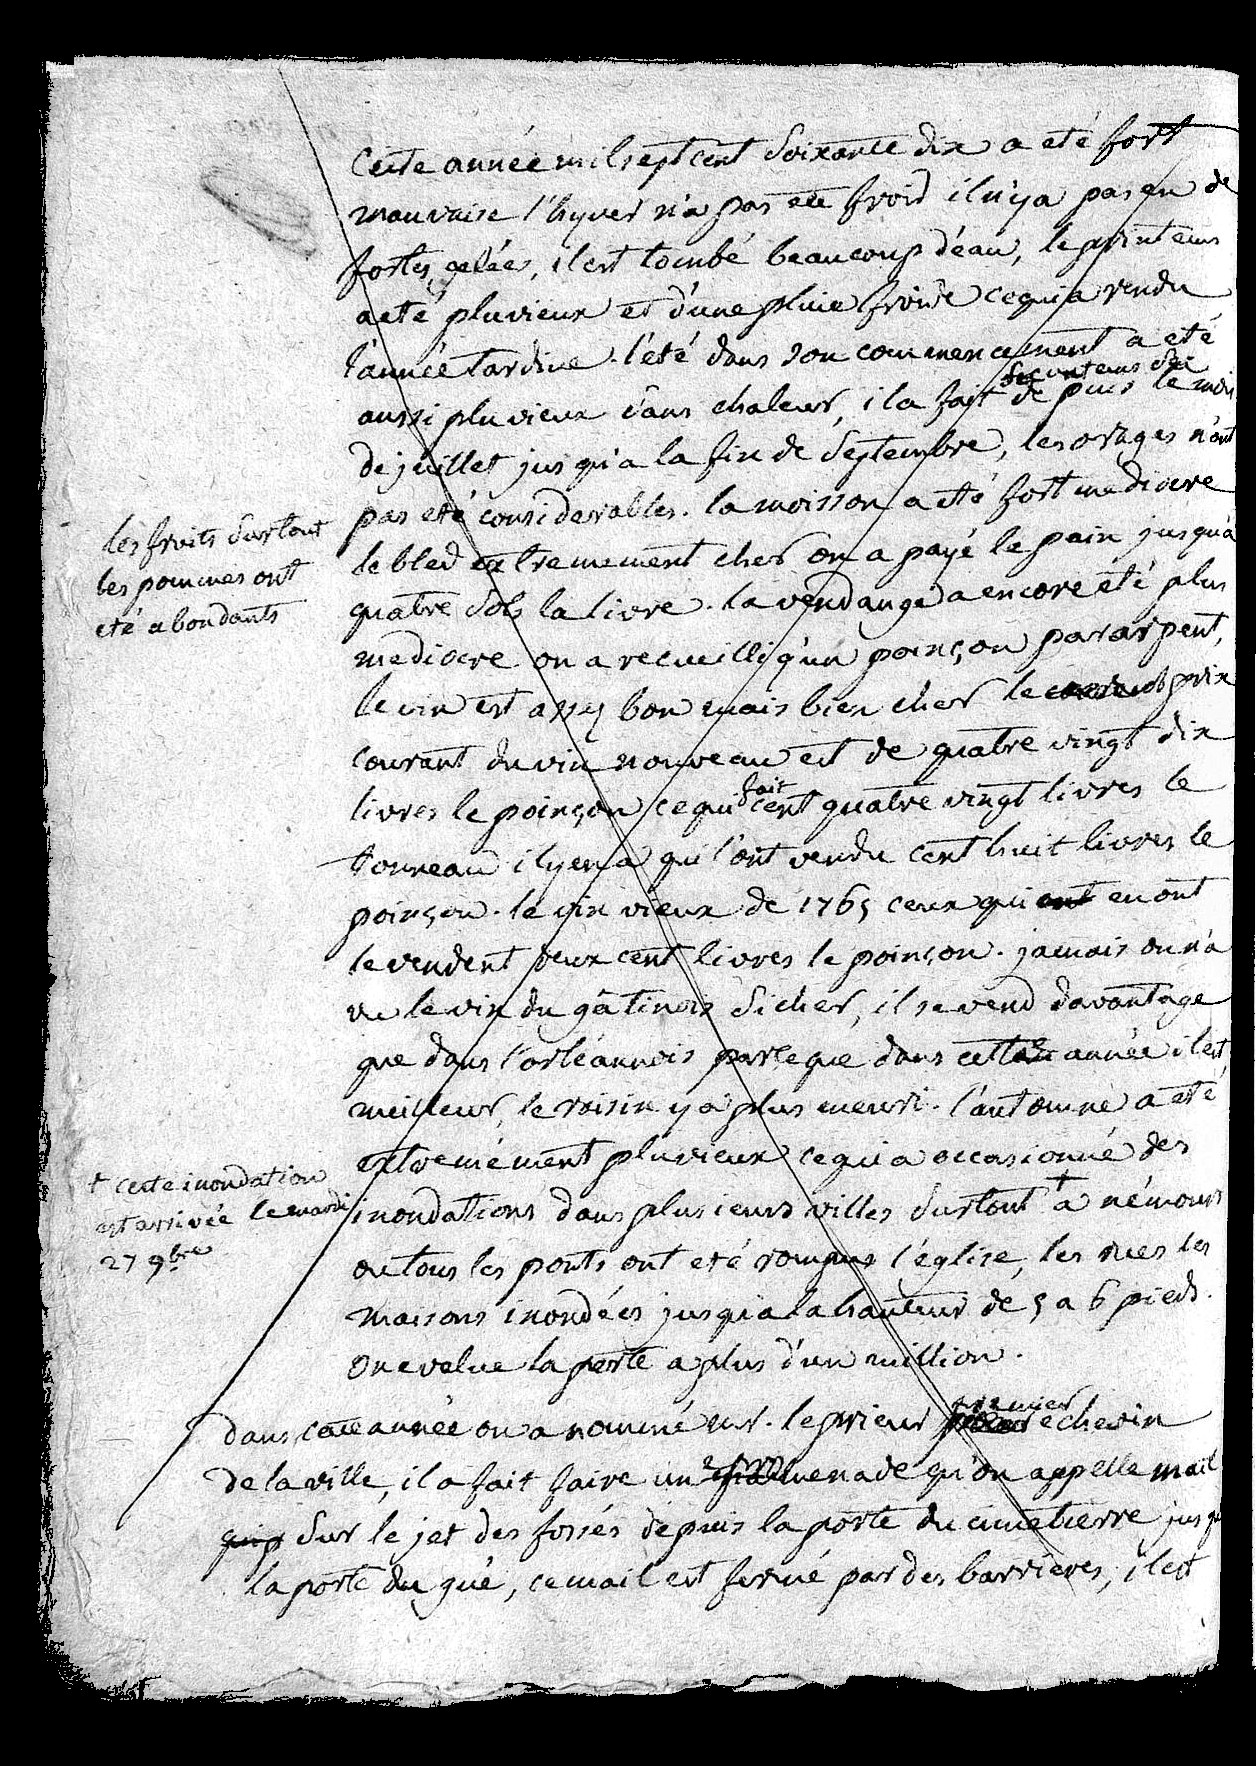 Cette année mil sept cent soixante dix a eté fort
mauvaise l'hyver n'a pas eté froid il n'y a pas eu de
fortes gelée, il est tombé beaucoup d'eau, le printems
a eté pluvieux et d'une pluie froide ce qui a rendu
l'année tardive. l'été dans son commencement a eté
aussi pluvieux sans chaleur, il a fait sec depuis le mois
de juillet jusqu'a la fin de septembre, les orages n'ont
pas eté considerables. la moisson a eté fort mediocre
les fruits surtout
les pommes ont
eté abondants
le bled extremement cher on a payé le pain jusqu'a
quatre sols la livre. la vendange a encore été plus
mediocre on a recueilli qu'un poinçon par arpent,
le vin est assy bon mais bien cher le prix
courant du vin nouveau est de quatre vingt dix
livres le poinçon ce qui fait cent quatre vingt livres le
tonneau il y en a qui l'ont vendu cent huit livres le
poinçon. le vin vieux de 1765 ceux qui ont en ont
le vendent deux cent livres le poinçon. jamais on n'a
vu le vin du gâtinois si cher, il se vend davantage
que dans l'orléannois parceque dans cette année il est
meilleur, le raisin y a plus meuri. l'automne a eté
extremement pluvieux ce qui a occasionné des
inondations dans plusieurs villes surtout + a némours
+ cette inondation
est arrivée le mardi
27 9bre
ou tous les ponts ont eté rompus l'église, les rues les
maisons inondées jusqu'a la hauteur de 5 a 6 pieds.
on evalue la perte a plus d'un million.
dans cette année on a nommé mr. le prieur premier echevin
de la ville, il a fait faire une promenade qu'on appelle mail
sur le jet des fossés depuis la porte du cimetierre jusqu
la porte du gué, ce mail est fermé par des barrieres, il est